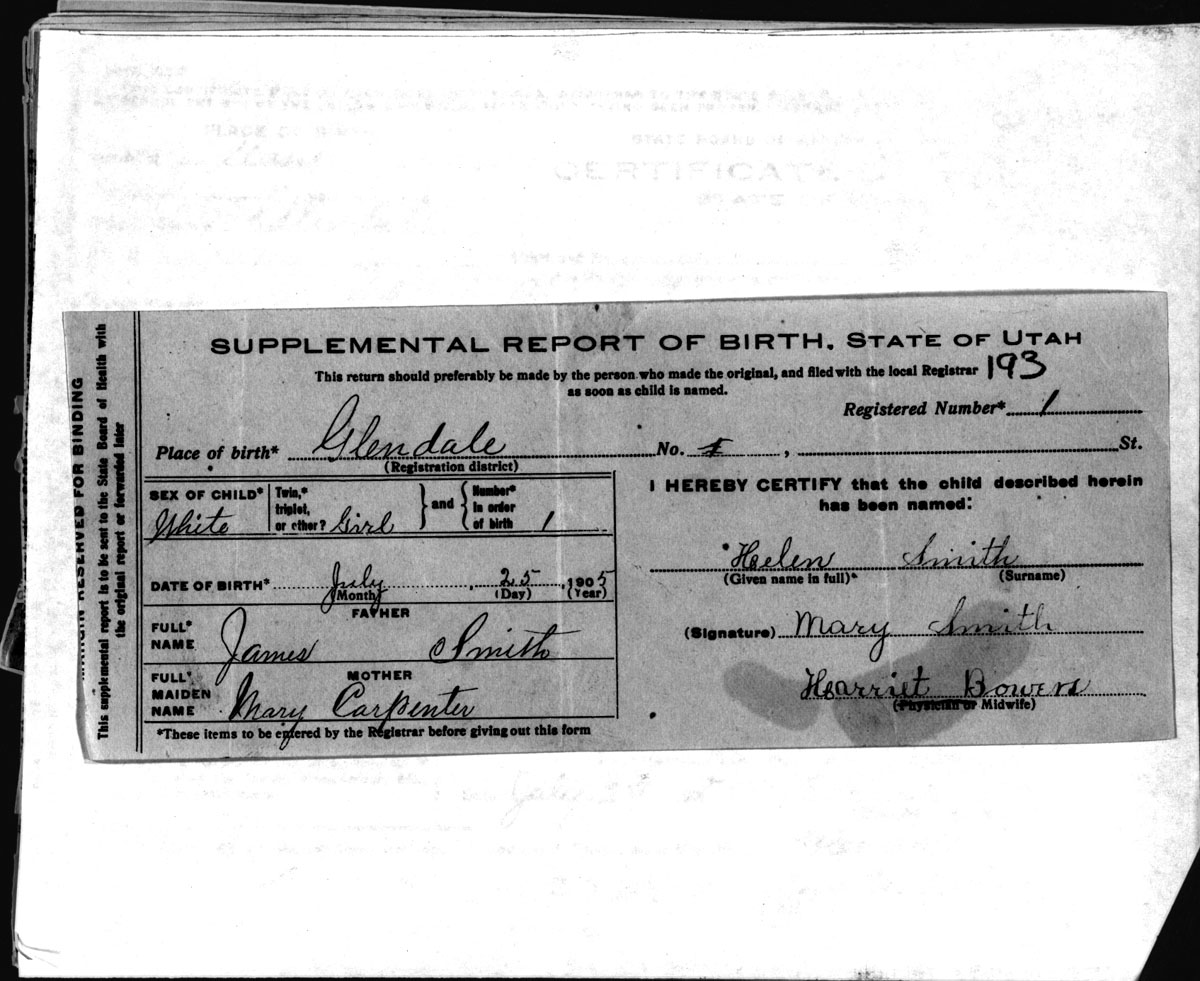 SUPPLEMENTAL REPORT OF BIRTH, STATE OF UTAH
This return should preferably be made by the person who made the original, and filed with the local Registrar 193
as soon as child is named.
Registered Number* 1
Place of birth* Glendale No. 1, St.
(Registration district)
MARGIN RESERVED FOR BINDING
This supplemental report is to be sent to the State Board of Health with
the original report or forwarded later
SEX OF CHILD* White
Twin,*
triplet,
or other? Girl
and
Number*
in order
of birth 1
DATE OF BIRTH* July, 25, 1905
(Month) (Day) (Year)
FATHER
FULL*
NAME James Smith
MOTHER
FULL*
MAIDEN
NAME Mary Carpenter
*These items to be entered by the Registrar before giving out this form
I HEREBY CERTIFY that the child described herein
has been named:
Helen Smith
(Given name in full)* (Surname)
(Signature) Mary Smith
Harriet Bowers
(Physician or Midwife)
CERTIFICATE